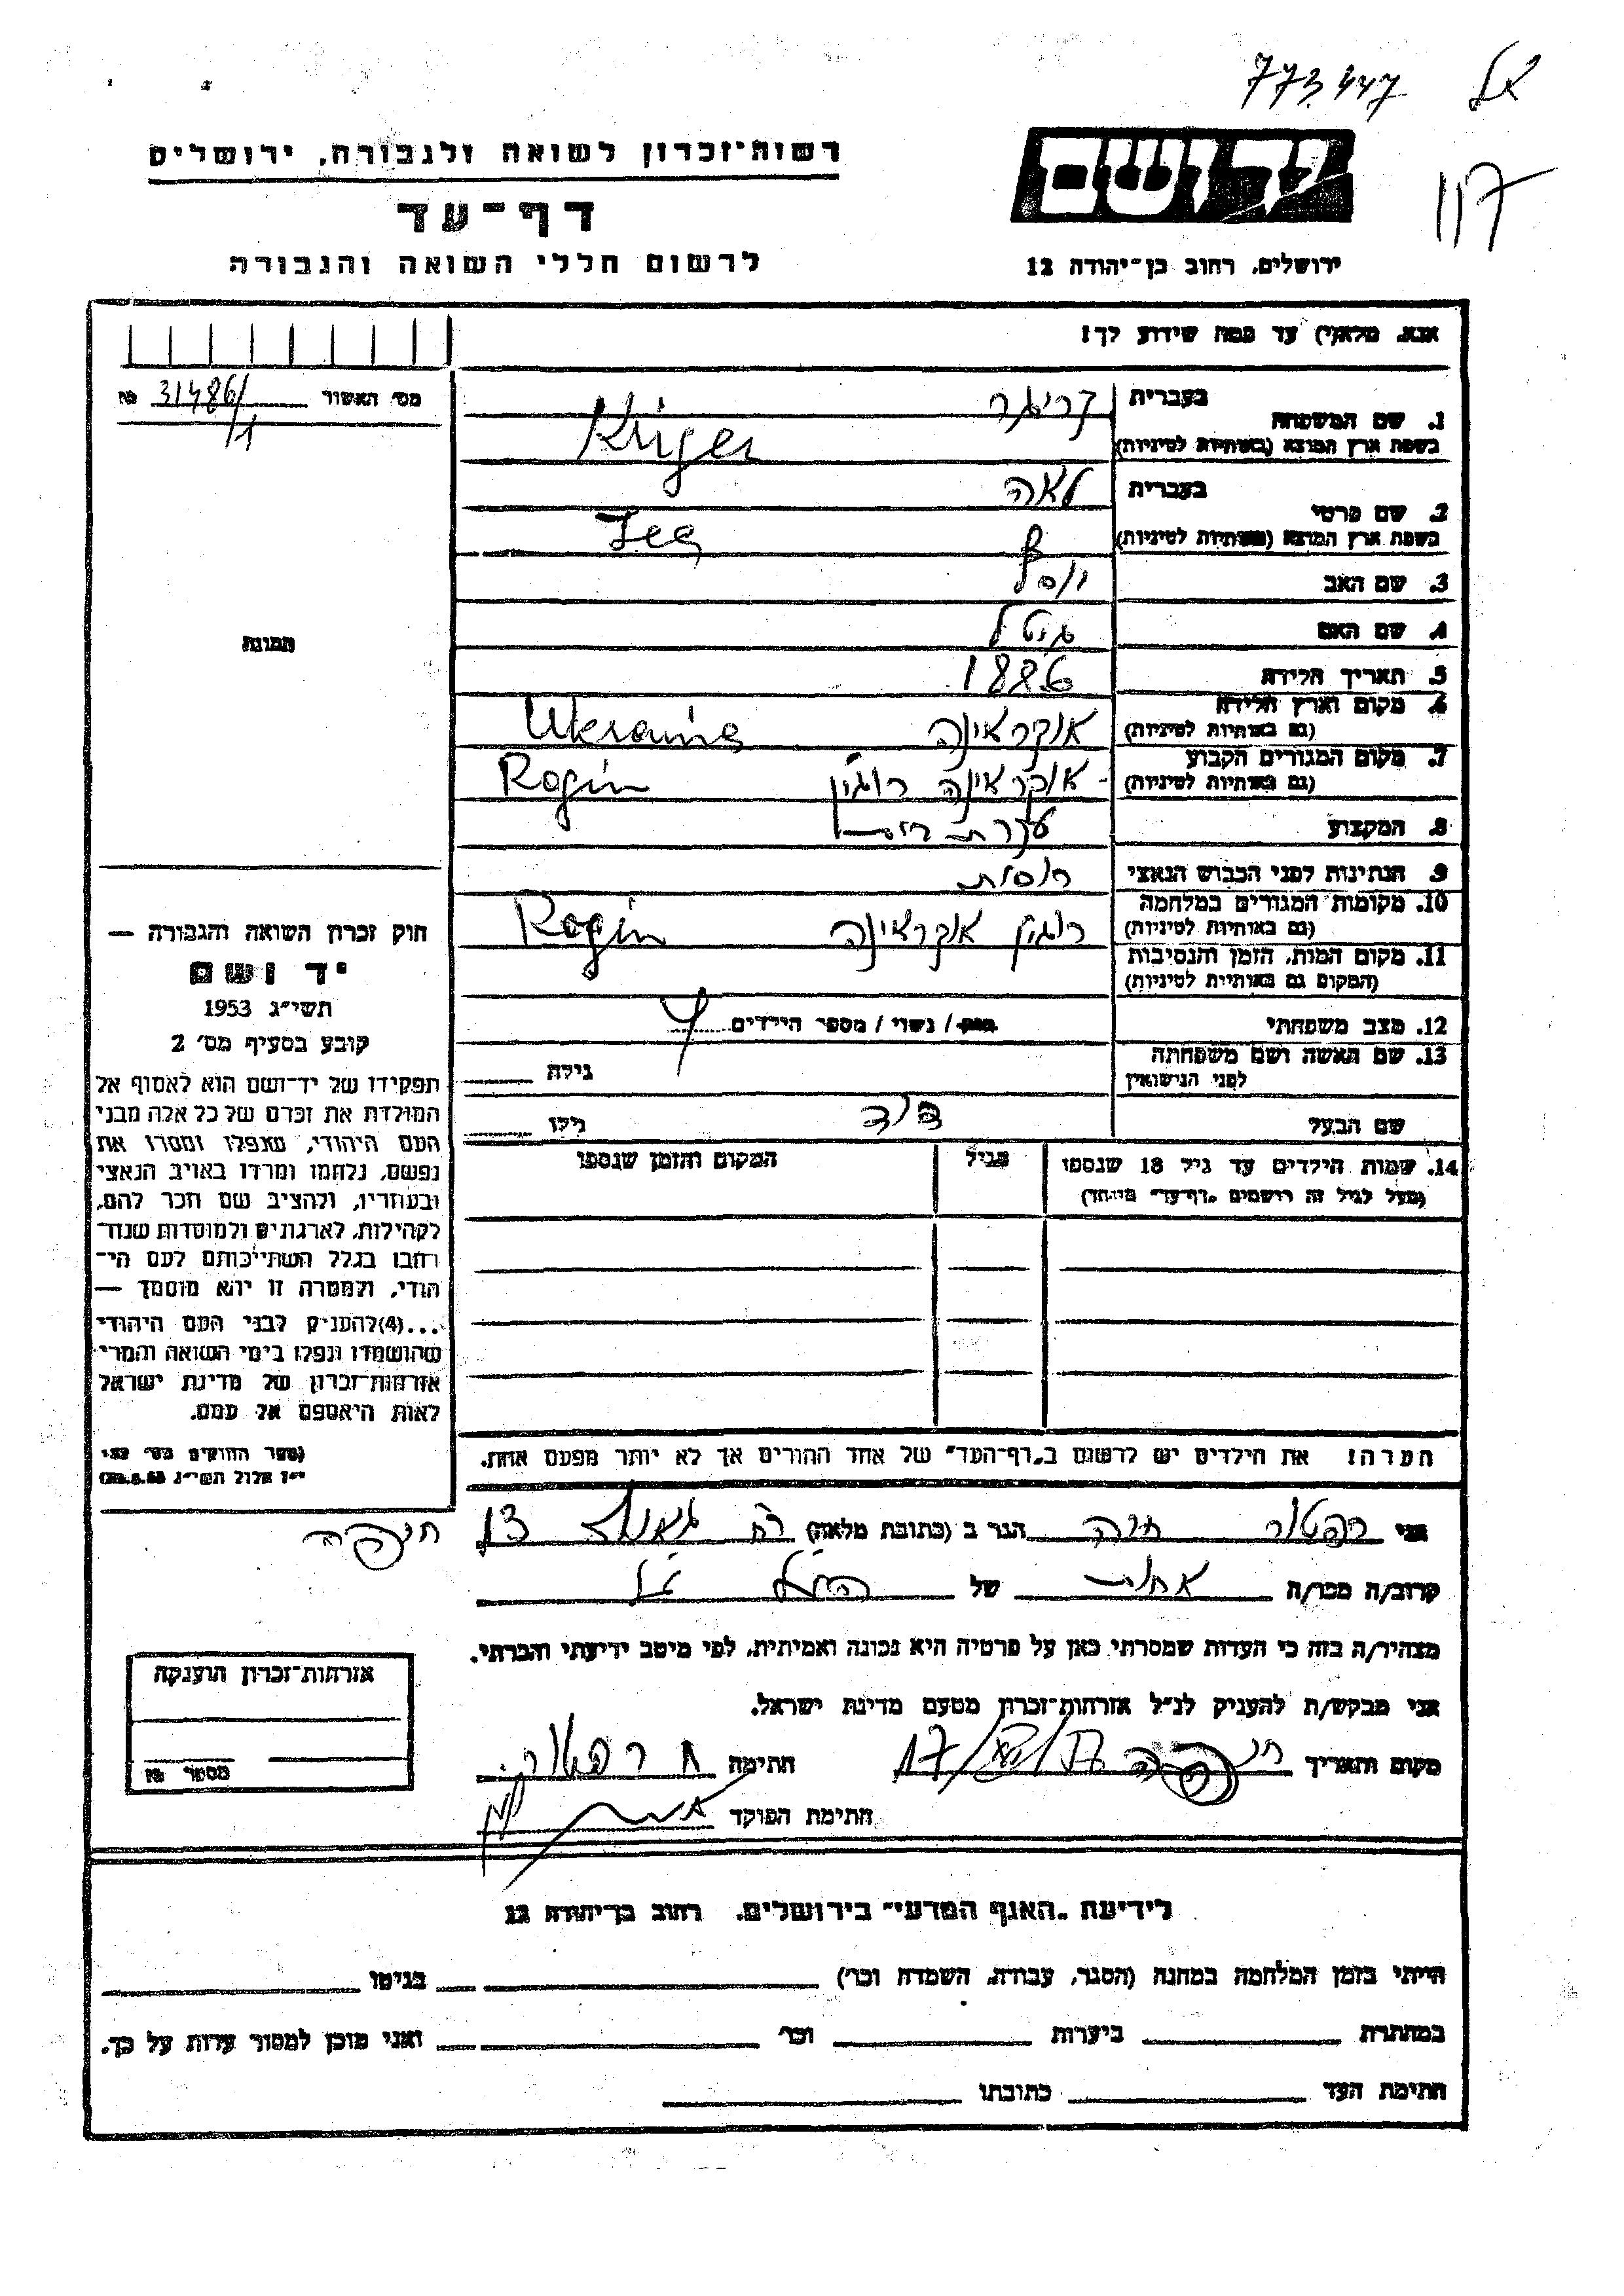 773447 אל
רשות־זכרון לשואה ולגבורה, ירושלים
יד ושם
דף־עד
ירושלים, רחוב בן־יהודה 12
לרשום חללי השואה והגבורה
אנא, מלא(י) עד כמה שידוע לך!
מס׳ האשור 31486/1 №
1. שם המשפחה
בעברית קריגר
בשפת ארץ המוצא (באותיות לטיניות) Kriger
2. שם פרטי
בעברית לאה
בשפת ארץ המוצא (באותיות לטיניות) Lea
3. שם האב יוסף
4. שם האם גיטל
5. תאריך הלידה 1886
6. מקום וארץ הלידה
(גם באותיות לטיניות) אוקראינה Ukraina
7. מקום המגורים הקבוע
(גם באותיות לטיניות) אוקראינה רוגין Rogin
8. המקצוע עקרת בית
9. הנתינות לפני הכבוש הנאצי רוסית
10. מקומות המגורים במלחמה
(גם באותיות לטיניות) רוגין אוקראינה Rogin
11. מקום המות, הזמן והנסיבות
(המקום גם באותיות לטיניות)
12. מצב משפחתי רווק / נשוי / מספר הילדים 4
13. שם האשה ושם משפחתה
לפני הנישואין גילה
שם הבעל דוד גילו
14. שמות הילדים עד גיל 18 שנספו
(מעל לגיל זה רושמים „דף־עד״ מיוחד)
בגיל
המקום והזמן שנספו
תמונה
חוק זכרון השואה והגבורה —
יד ושם
תשי״ג 1953
קובע בסעיף מס׳ 2
תפקידו של יד־ושם הוא לאסוף אל
המולדת את זכרם של כל אלה מבני
העם היהודי, שנפלו ומסרו את
נפשם, נלחמו ומרדו באויב הנאצי
ובעוזריו, ולהציב שם וזכר להם,
לקהילות, לארגונים ולמוסדות שנח־
רבו בגלל השתייכותם לעם הי־
הודי, ולמטרה זו יהא מוסמך —
...(4)להעניק לבני העם היהודי
שהושמדו ונפלו בימי השואה והמרי
אזרחות־זכרון של מדינת ישראל
לאות היאספם אל עמם.
(ספר החוקים מס׳ 132
י״ז אלול תשי״ג 28.8.53)
הערה! את הילדים יש לרשום ב„דף־העד״ של אחד ההורים אך לא יותר מפעם אחת.
אני רפפטור חיה הגר ב (כתובת מלאה) רח גאולה
חיפה
קרוב/ה מכר/ה אחות של
מצהיר/ה בזה כי העדות שמסרתי כאן על פרטיה היא נכונה ואמיתית, לפי מיטב ידיעתי והכרתי.
אני מבקש/ת להעניק לנ״ל אזרחות־זכרון מטעם מדינת ישראל.
מקום ותאריך חיפה חתימה
חתימת הפוקד
אזרחות־זכרון הוענקה
מספר №
לידיעת „האגף המדעי״ בירושלים, רחוב בן־יהודה 12
הייתי בזמן המלחמה במחנה (הסגר, עבודה, השמדה וכו׳) בגיטו
במחתרת ביערות וכו׳ ואני מוכן למסור עדות על כך.
חתימת העד כתובתו